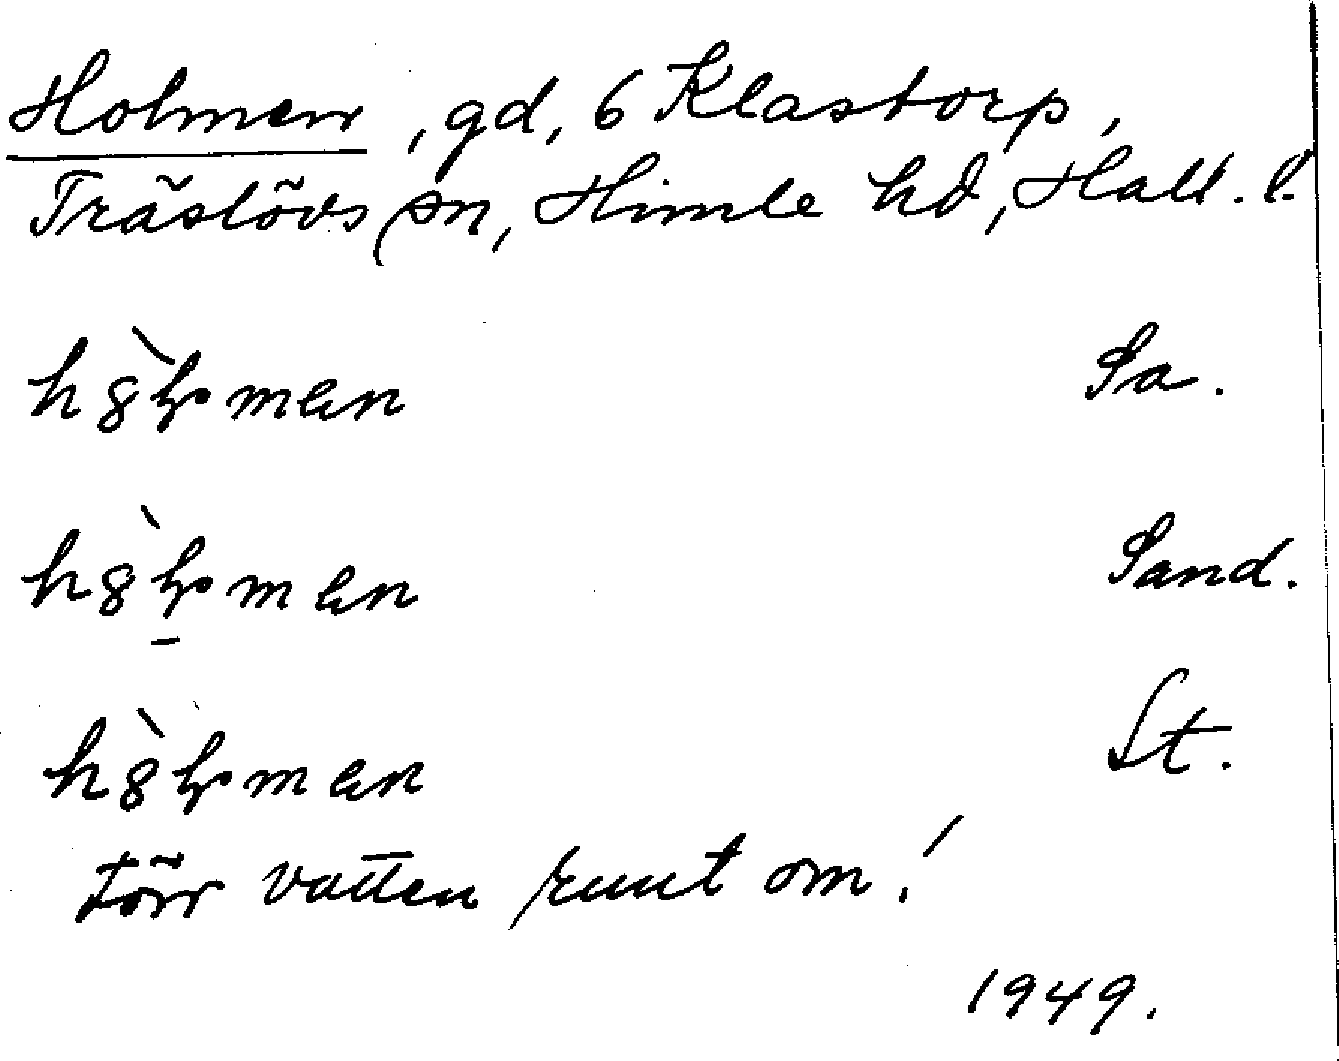 Holmen, gd, 6 Klastorp,
Träslövs sn, Himle hd, Hall. l.
Sa.
Sand.
St.
förr vatten runt om!
1949.